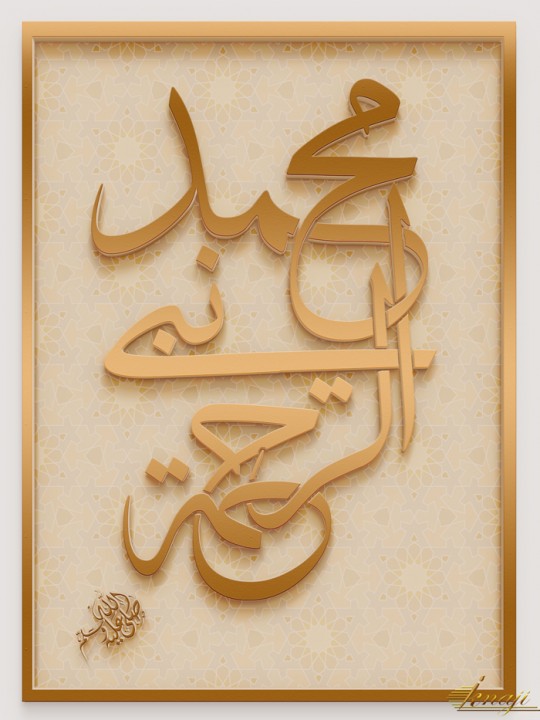 محمد
نبي
الرحمة
صلى الله عليه وسلم